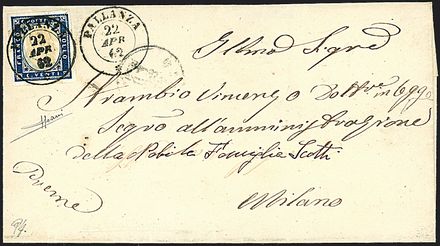 FRANCO BOLLO
C. VENTI
22
APR
62
PALLANZA
22
APR
62
Illmo Sigre
Strambio Vincenzo Dottre in Legge
Segro all'amministrazione
della Nobile Famiglia Scotti
Preme
Milano